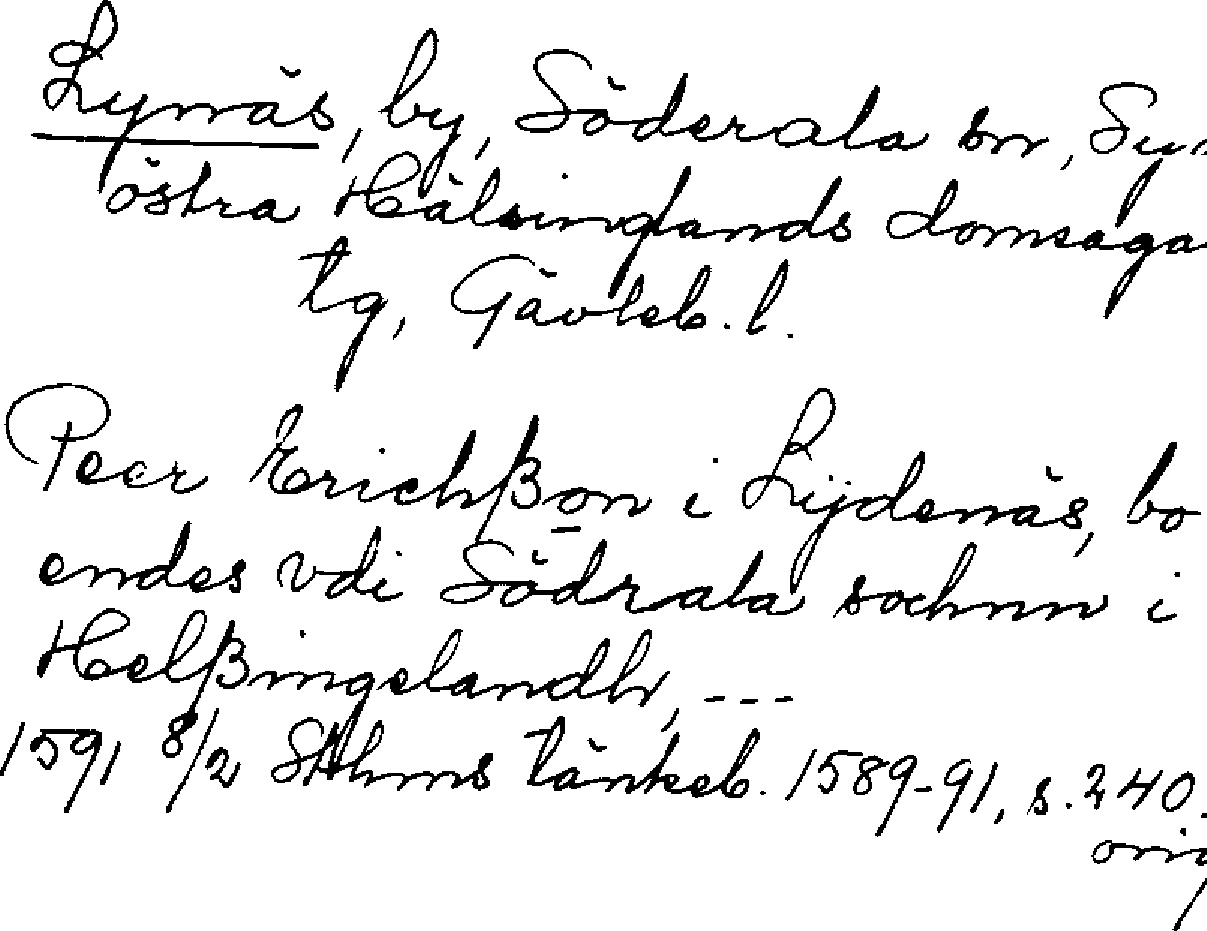 Lynäs, by, Söderala sn, Sy
östra Hälsinglands domsaga
tg, Gävleb. l.
Peer Erichßon i Lÿdenäs, bo
endes vdi Södrala sochnn i
Helßingelandh, ---
1591 8/2 Sthms tänkeb. 1589-91, s. 240.
orig